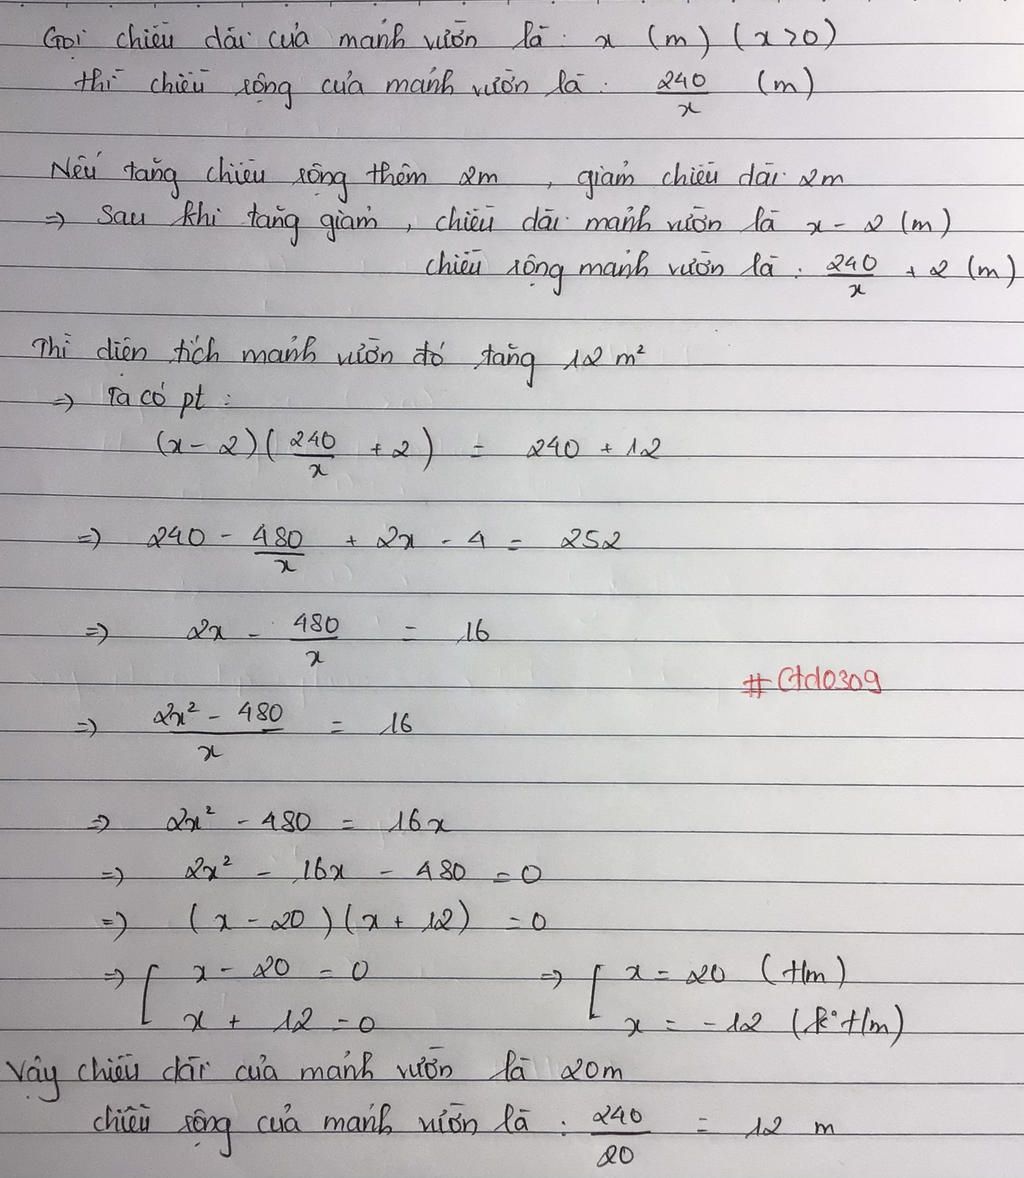 Gọi chiều dài của mảnh vườn là: x (m) (x>0)
thì chiều rộng của mảnh vườn là: 240/x (m)
Nếu tăng chiều rộng thêm 2m, giảm chiều dài 2m
=> Sau khi tăng giảm, chiều dài mảnh vườn là x - 2 (m)
chiều rộng mảnh vườn là: 240/x + 2 (m)
Thì diện tích mảnh vườn đó tăng 12 m²
=> Ta có pt:
(x - 2)(240/x + 2) = 240 + 12
=> 240 - 480/x + 2x - 4 = 252
=> 2x - 480/x = 16
#Ctd0309
=> (2x² - 480)/x = 16
=> 2x² - 480 = 16x
=> 2x² - 16x - 480 = 0
=> (x - 20)(x + 12) = 0
=> [ x - 20 = 0 => [ x = 20 (t/m)
x + 12 = 0 x = -12 (k° t/m)
Vậy chiều dài của mảnh vườn là 20m
chiều rộng của mảnh vườn là: 240/20 = 12 m